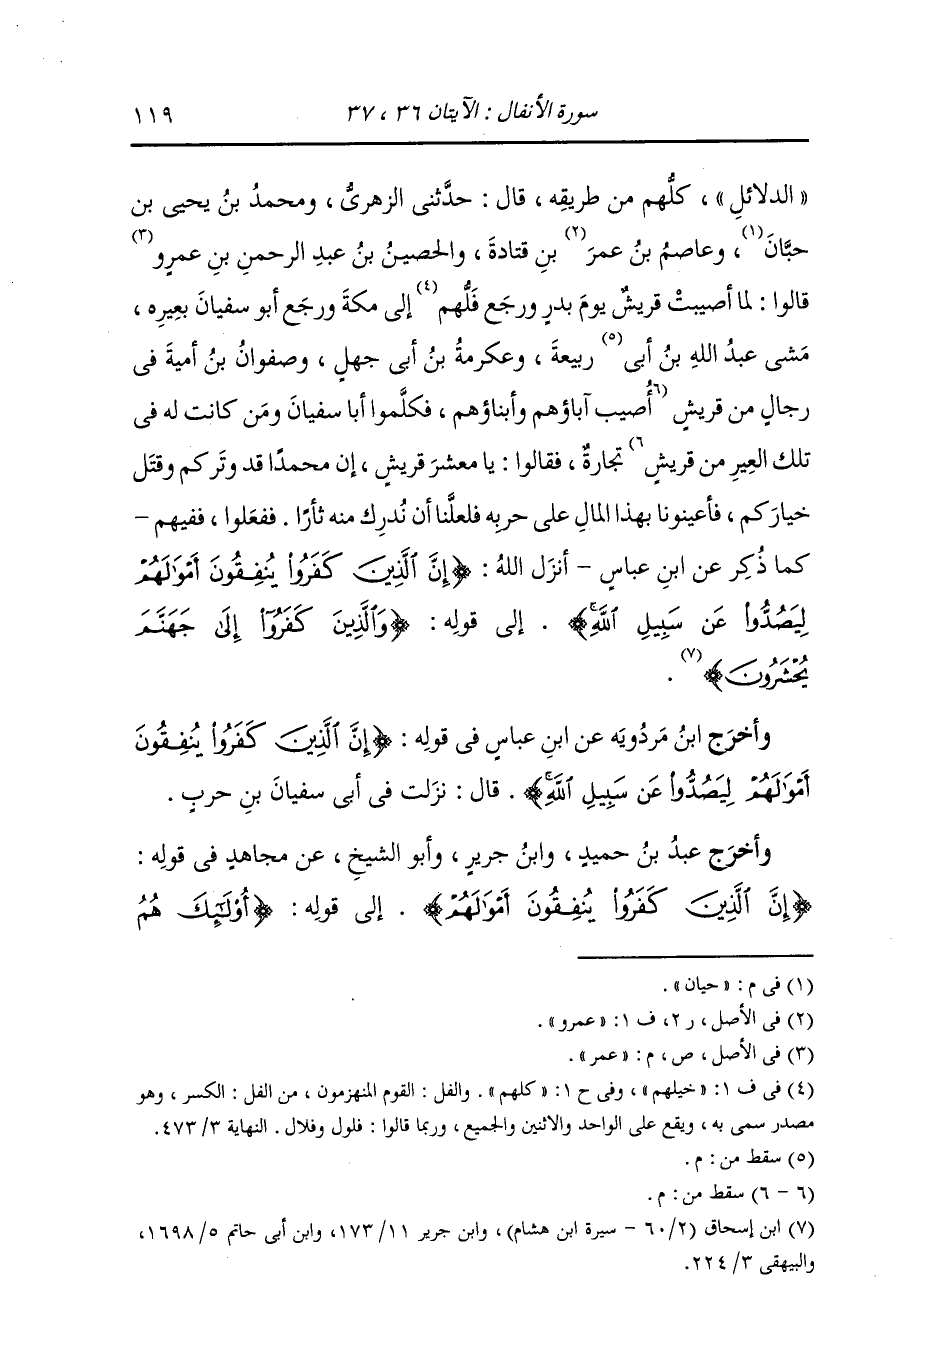 سورة الأنفال : الآيتان ٣٦ ، ٣٧ ١١٩
« الدلائلِ » ، كلُّهم من طريقِه ، قال : حدَّثنى الزهرىُّ ، ومحمدُ بنُ يحيى بن
حبَّانَ(١) ، وعاصمُ بنُ عمرَ(٢) بنِ قتادةَ ، والحصينُ بنُ عبدِ الرحمنِ بنِ عمرٍو(٣)
قالوا : لما أصيبتْ قريشٌ يومَ بدرٍ ورجَع فَلُّهم(٤) إلى مكةَ ورجَع أبو سفيانَ بعِيرِه ،
مَشى عبدُ اللهِ بنُ أبى(٥) ربيعةَ ، وعكرمةُ بنُ أبى جهلٍ ، وصفوانُ بنُ أميةَ فى
رجالٍ من قريشٍ (٦أُصيب آباؤهم وأبناؤهم ، فكلَّموا أبا سفيانَ ومَن كانت له فى
تلك العِيرِ من قريشٍ٦) تجارةٌ ، فقالوا : يا معشرَ قريشٍ ، إن محمدًا قد وتَركم وقتَل
خيارَكم ، فأعينونا بهذا المالِ على حربِه فلعلَّنا أن نُدرِك منه ثأرًا . ففعَلوا ، ففيهم –
كما ذُكِر عن ابنِ عباسٍ – أنزَل اللهُ : ﴿إِنَّ ٱلَّذِينَ كَفَرُوا۟ يُنفِقُونَ أَمْوَٰلَهُمْ
لِيَصُدُّوا۟ عَن سَبِيلِ ٱللَّهِۚ﴾ . إلى قولِه : ﴿وَٱلَّذِينَ كَفَرُوٓا۟ إِلَىٰ جَهَنَّمَ
يُحْشَرُونَ﴾(٧) .
وأخرَج ابنُ مَردُويَه عن ابنِ عباسٍ فى قولِه : ﴿إِنَّ ٱلَّذِينَ كَفَرُوا۟ يُنفِقُونَ
أَمْوَٰلَهُمْ لِيَصُدُّوا۟ عَن سَبِيلِ ٱللَّهِۚ﴾ . قال : نزَلت فى أبى سفيانَ بنِ حربٍ .
وأخرَج عبدُ بنُ حميدٍ ، وابنُ جريرٍ ، وأبو الشيخِ ، عن مجاهدٍ فى قولِه :
﴿إِنَّ ٱلَّذِينَ كَفَرُوا۟ يُنفِقُونَ أَمْوَٰلَهُمْ﴾ . إلى قولِه : ﴿أُو۟لَٰٓئِكَ هُمُ
(١) فى م : « حيان » .
(٢) فى الأصل ، ر ٢، ف ١: « عمرو » .
(٣) فى الأصل ، ص ، م : « عمر » .
(٤) فى ف ١: « خيلهم » ، وفى ح ١: « كلهم » . والفل : القوم المنهزمون ، من الفل : الكسر ، وهو
مصدر سمى به ، ويقع على الواحد والاثنين والجميع ، وربما قالوا : فلول وفلال . النهاية ٣/ ٤٧٣.
(٥) سقط من : م .
(٦ – ٦) سقط من : م .
(٧) ابن إسحاق (٦٠/٢ – سيرة ابن هشام) ، وابن جرير ١١/ ١٧٣، وابن أبى حاتم ٥/ ١٦٩٨،
والبيهقى ٣/ ٢٢٤.